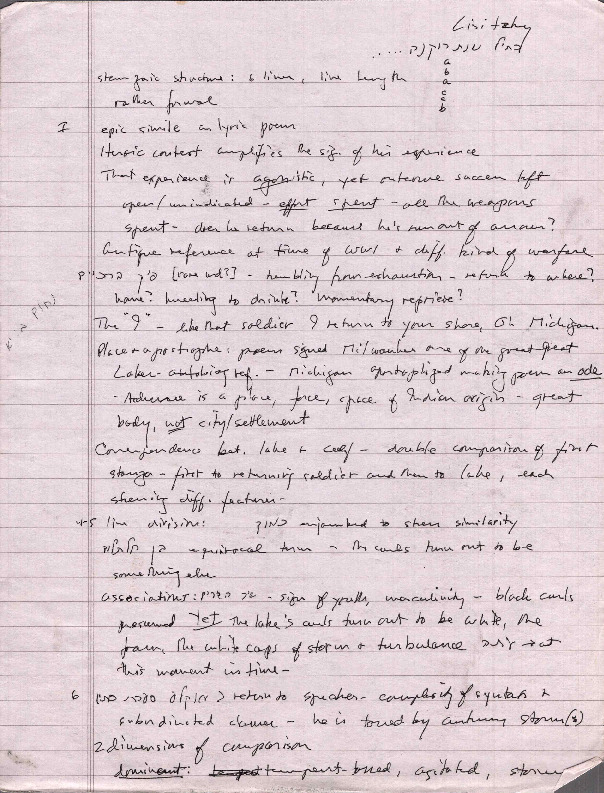 Lisitzky
a
stanzaic structure: 6 lines, line length
b
a
rather formal
c
c
b
I epic simile in lyric poem
Heroic context amplifies the sig. of his experience
That experience is agonistic, yet outcome success left
open/unindicated - effort spent - all the weapons
spent - does he return because he's run out of ammun?
Antique reference at time of WWI & diff. kind of warfare
[rare wd?] - trembling from exhaustion - return to where?
home? kneeling to drink? momentary reprieve?
The "I" - like that soldier I return to your shore, Oh Michigan.
Place & apostrophe: poem signed Milwaukee one of one great Great
Lakes - autobiog ref. - Michigan apostrophized making poem an ode
- Addressee is a place, force, space of Indian origin - great
body, not city/settlement
Correspondence bet. lake & - double comparison of first
stanza - first to returning soldier and then to lake, each
sharing diff. features -
4-5 line division: enjambed to show similarity
equivocal term - the curls turn out to be
something else
associations: - sign of youth, masculinity - black curls
presumed Yet the lake's curls turn out to be white, the
foam, the white caps of storm & turbulance at
this moment in time -
6 return to speaker - complexity of syntax &
subordinated clause - he is tossed by autumn storm(s)
2 dimensions of comparison
dominant: tempest-tossed, agitated, storm